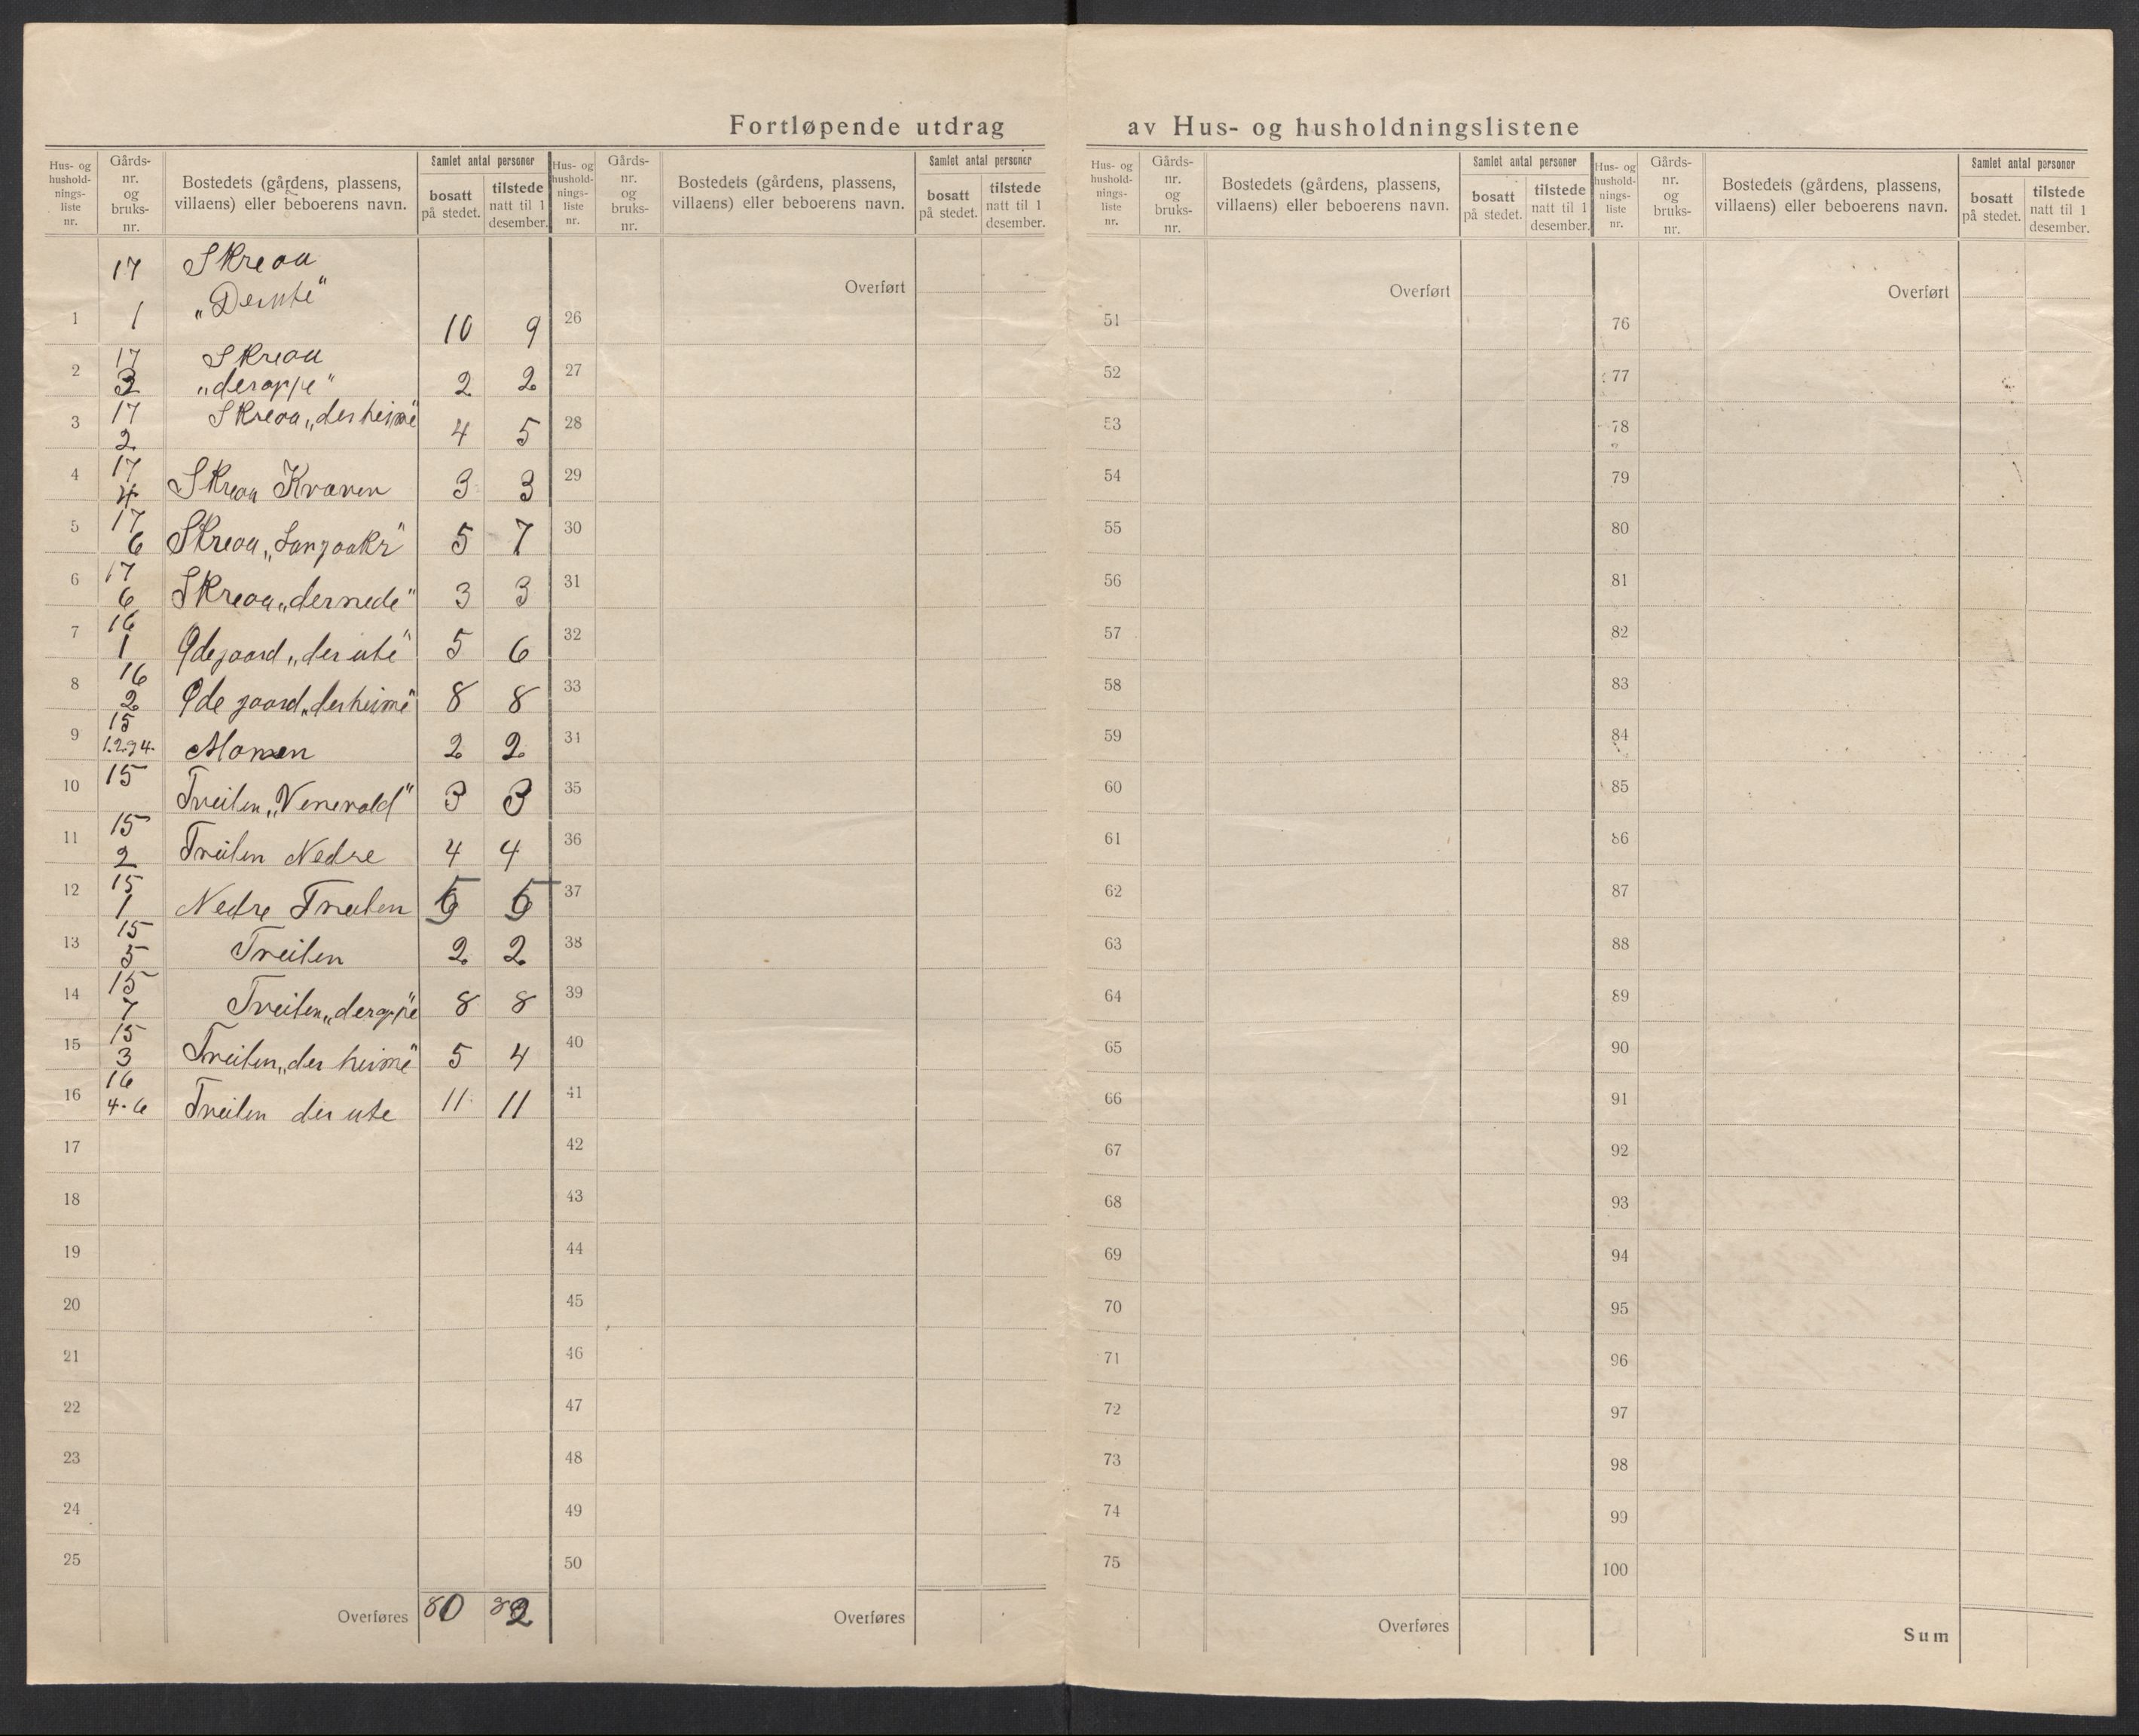 Fortløpende utdrag av Hus- og husholdningslistene
Hus- og hushold-nings-liste nr. Gårds-nr. og bruks-nr. Bostedets (gårdens, plassens, villaens) eller beboerens navn. Samlet antal personer bosatt på stedet. tilstede natt til 1 desember.
Hus- og hushold-nings-liste nr. Gårds-nr. og bruks-nr. Bostedets (gårdens, plassens, villaens) eller beboerens navn. Samlet antal personer bosatt på stedet. tilstede natt til 1 desember.
Hus- og hushold-nings-liste nr. Gårds-nr. og bruks-nr. Bostedets (gårdens, plassens, villaens) eller beboerens navn. Samlet antal personer bosatt på stedet. tilstede natt til 1 desember.
Hus- og hushold-nings-liste nr. Gårds-nr. og bruks-nr. Bostedets (gårdens, plassens, villaens) eller beboerens navn. Samlet antal personer bosatt på stedet. tilstede natt til 1 desember.
17 Skreaa
1 1 "Derute" 10 9
17 Skreaa
2 3 "deroppe" 2 2
3 17 2 Skreaa "der heime" 4 5
4 17 4 Skreaa Kvaren 3 3
5 17 6 Skreaa "Langaakr" 5 7
6 17 6 Skreaa "dernede" 3 3
7 16 1 Ødegaard "der ute" 5 6
8 16 2 Øde gaard "derheime" 8 8
9 15 1.2.3 4. Momen 2 2
10 15 Tveiten "Venevold" 3 3
11 15 2 Tveiten Nedre 4 4
12 15 1 Nedre Tveiten 5 5
13 15 5 Tveiten 2 2
14 15 7 Tveiten "deroppe" 8 8
15 15 3 Tveiten "der heime" 5 4
16 16 4-6 Tveiten der ute 11 11
17
18
19
20
21
22
23
24
25
Overføres 80 82
Overført
26
27
28
29
30
31
32
33
34
35
36
37
38
39
40
41
42
43
44
45
46
47
48
49
50
Overføres
Overført
51
52
53
54
55
56
57
58
59
60
61
62
63
64
65
66
67
68
69
70
71
72
73
74
75
Overføres
Overført
76
77
78
79
80
81
82
83
84
85
86
87
88
89
90
91
92
93
94
95
96
97
98
99
100
Sum